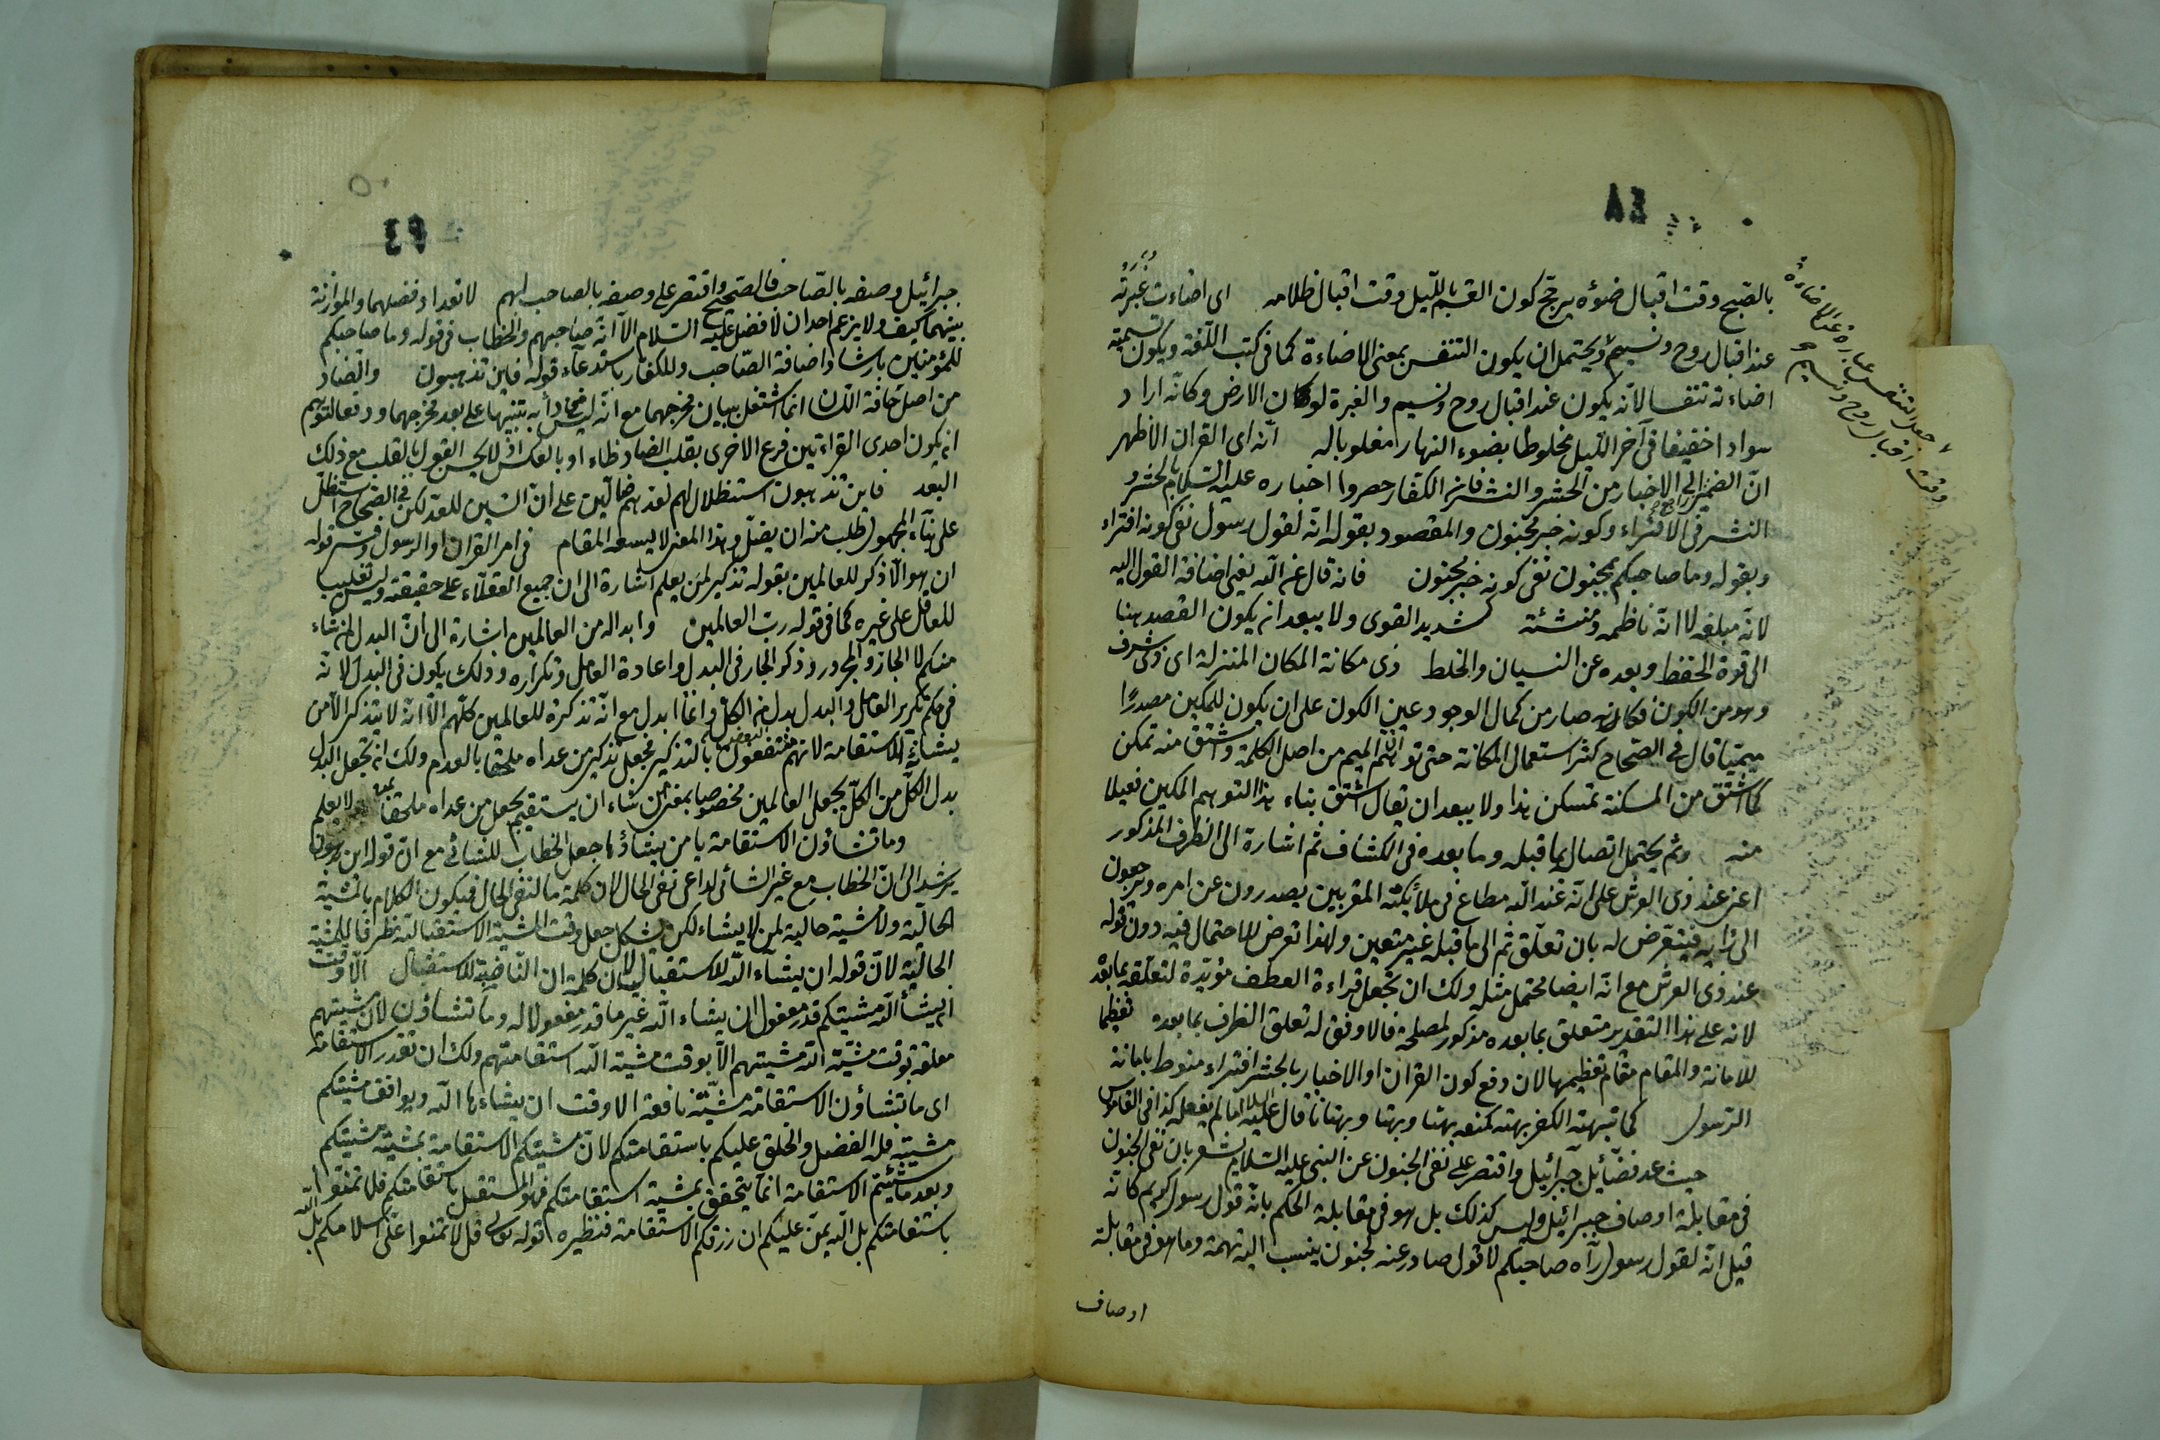 بالصبح وقت اقبال ضوؤه يرجح كون القسم بالليل وقت اقبال ظلامه اى اضاءت غبرته
عند اقبال روح ونسيم ويحتمل ان يكون التنفس بمعنى الاضاءة كما فى كتب اللغة ويكون تسمية
اضاءته تنفسا لانه يكون عند اقبال روح ونسيم والغبرة لون الارض وكانه اراد
سوادا خفيفا فى آخر الليل مخلوطا بضوء النهار مغلوبا له انه اى القران الاظهر
ان الضمير الى الاخبار من الحشر والنشر فان الكفار حصروا اخباره عليه السلام بالحشر و
النشر فى الافتراء وكونه خبر مجنون والمقصود بقوله انه لقول رسول نفى كونه افتراء
وبقوله وما صاحبكم بمجنون نفى كونه خبر مجنون فانه قال عن الله يعنى اضافة القول اليه
لانه مبلغه لا انه ناظمه ومنشئه شديد القوى ولا يبعد ان يكون القصد هنا
الى قوة الحفظ وبعده عن النسيان والخلط ذى مكانة المكان المنزلة اى ذى شرف
وهو من الكون فكانه صار من كمال الوجود عين الكون على ان يكون للمكين مصدرا
ميميا قال فى الصحاح كثر استعمال المكانة حتى توهم الميم من اصل الكلمة واشتق منه تمكن
كما اشتق من المسكنة تمسكن هذا ولا يبعد ان يقال اشتق بناء هذا التوهم المكين فعيلا
منه وثم يحتمل اتصاله بما قبله وما بعده فى الكشاف ثم اشارة الى الظرف المذكور
اعنى عند ذى العرش على انه عند الله مطاع فى ملائكته المقربين يصدرون عن امره ويرجعون
الى رايه فيتعرض له بان تعلق ثم الى ما قبله غير متعين ولهذا تعرض للاحتمال فيه دون قوله
عند ذى العرش مع انه ايضا محتمل مثله ولك ان تجعل قراءة العطف مؤيدة لتعلقه بما بعده
لانه على هذا التقدير متعلق بما بعده مذكور لمصلحة فالاوفق له تعلق الظرف بما بعده تعظيما
للامانة والمقام مقام تعظيمها لان دفع كون القران او الاخبار بالحشر افتراء منوط بامانة
الرسول كما تبهته الكفر بهته كمنعه بهتا وبهتا وبهتانا قال عليه ما لم يفعل كذا فى القاموس
حيث عد فضائل جبرائيل واقتصر على نفى الجنون عن النبى عليه السلام يشعر بان نفى الجنون
فى مقابلة اوصاف جبرائيل وليس كذلك بل هو فى مقابلة الحكم بانه قول رسول كريم كانه
قيل انه لقول رسول رآه صاحبكم لا قول صادر عنه لجنون ينسب اليه تهمة وما هو فى مقابلة
اوصاف
جعل التنفس عبارة عن الاضاءة
وقت اقبال روح ونسيم
٤٨
جبرائيل وصفه بالصاحب فالصحيح واقتصر على وصفه بالصاحب لهم لا تعداد فضلهما والموازنة
بينهما كيف ولا يزعم احد ان لا فضل عليه السلام الا انه صاحبهم والخطاب فى قوله وما صاحبكم
للمؤمنين بارشاد اضافة الصاحب وللكفار باستدعاء قوله فاين تذهبون والضاد
من اصل حافة اللسان انما اشتغل ببيان مخرجهما مع انه ليس دأبه تنبيها على بعد مخرجهما ودفعا لتوهم
ان يكون احدى القراءتين فرع الاخرى بقلب الضاد ظاء او بالعكس اذ لا يحسن القول بالقلب مع ذلك
البعد فاين تذهبون استظلال لهم لعدهم ضالين على ان السين للعد لكن فى الصحاح استظل
على بناء المجهول طلب منه ان يضل وهذا المعنى لا يسعه المقام فى امر القران او الرسول وفسر قوله
ان هو الا ذكر للعالمين بقوله تذكير لمن يعلم اشارة الى ان جميع العقلاء على حقيقته وليس تغليب
للعاقل على غيره كما فى قوله رب العالمين وابداله من العالمين اشارة الى ان البدل لمن شاء
منكم لا الجار والمجرور وذكر الجار فى البدل واعادة العامل وتكراره وذلك يكون فى البدل لانه
فى حكم تكرير العامل والبدل بدل من الكل وانما ابدل مع انه تذكرة للعالمين كلهم الا انه لا يتذكر الا من
يشاء الاستقامة لانهم منتفعون بالتذكير فجعل تذكير من عداه ملحقا بالعدم ولك ان تجعل البدل
بدل الكل من الكل بجعل العالمين مخصوصا بمن شاء ان يستقيم بجعل من عداه ملحقا لا يعلم
وما تشاؤن الاستقامة يا من يشاؤها جعل الخطاب للشائى مع ان قوله اين تذهبون
يرشد الى ان الخطاب مع غير الشائى لداعى نفى الحال لان كلمة ما لنفى الحال فيكون الكلام بالمشية
الحالية ولا مشية حالية لمن لا يشاء لكن يشكل جعل وقت المشية الاستقبالية ظرفا للمشية
الحالية لان قوله ان يشاء الله للاستقبال لان كلمة ان الناصبة للاستقبال الا وقت
ان يشأ الله مشيتكم قدر مفعول ان يشاء الله غير ما قدر مفعولا له وما تشاؤن لان مشيتهم
معلقة بوقت مشية الله مشيتهم الا بوقت مشية الله استقامتهم ولك ان تقدر الاستقامة
اى ما تشاؤن الاستقامة مشية نافعة الا وقت ان يشاءها الله ويوافق مشيتكم
مشيته فله الفضل والحق عليكم باستقامتكم لان مشيتكم الاستقامة بمشية مشيتكم
وبعد ما شئتم الاستقامة انما يتحقق بمشية استقامتكم فهو المستقبل باستقامتكم فلا تمنوا
باستقامتكم بل الله يمن عليكم ان رزقكم الاستقامة فنظيره قوله تعالى قل لا تمنوا على اسلامكم بل الله
٤٩